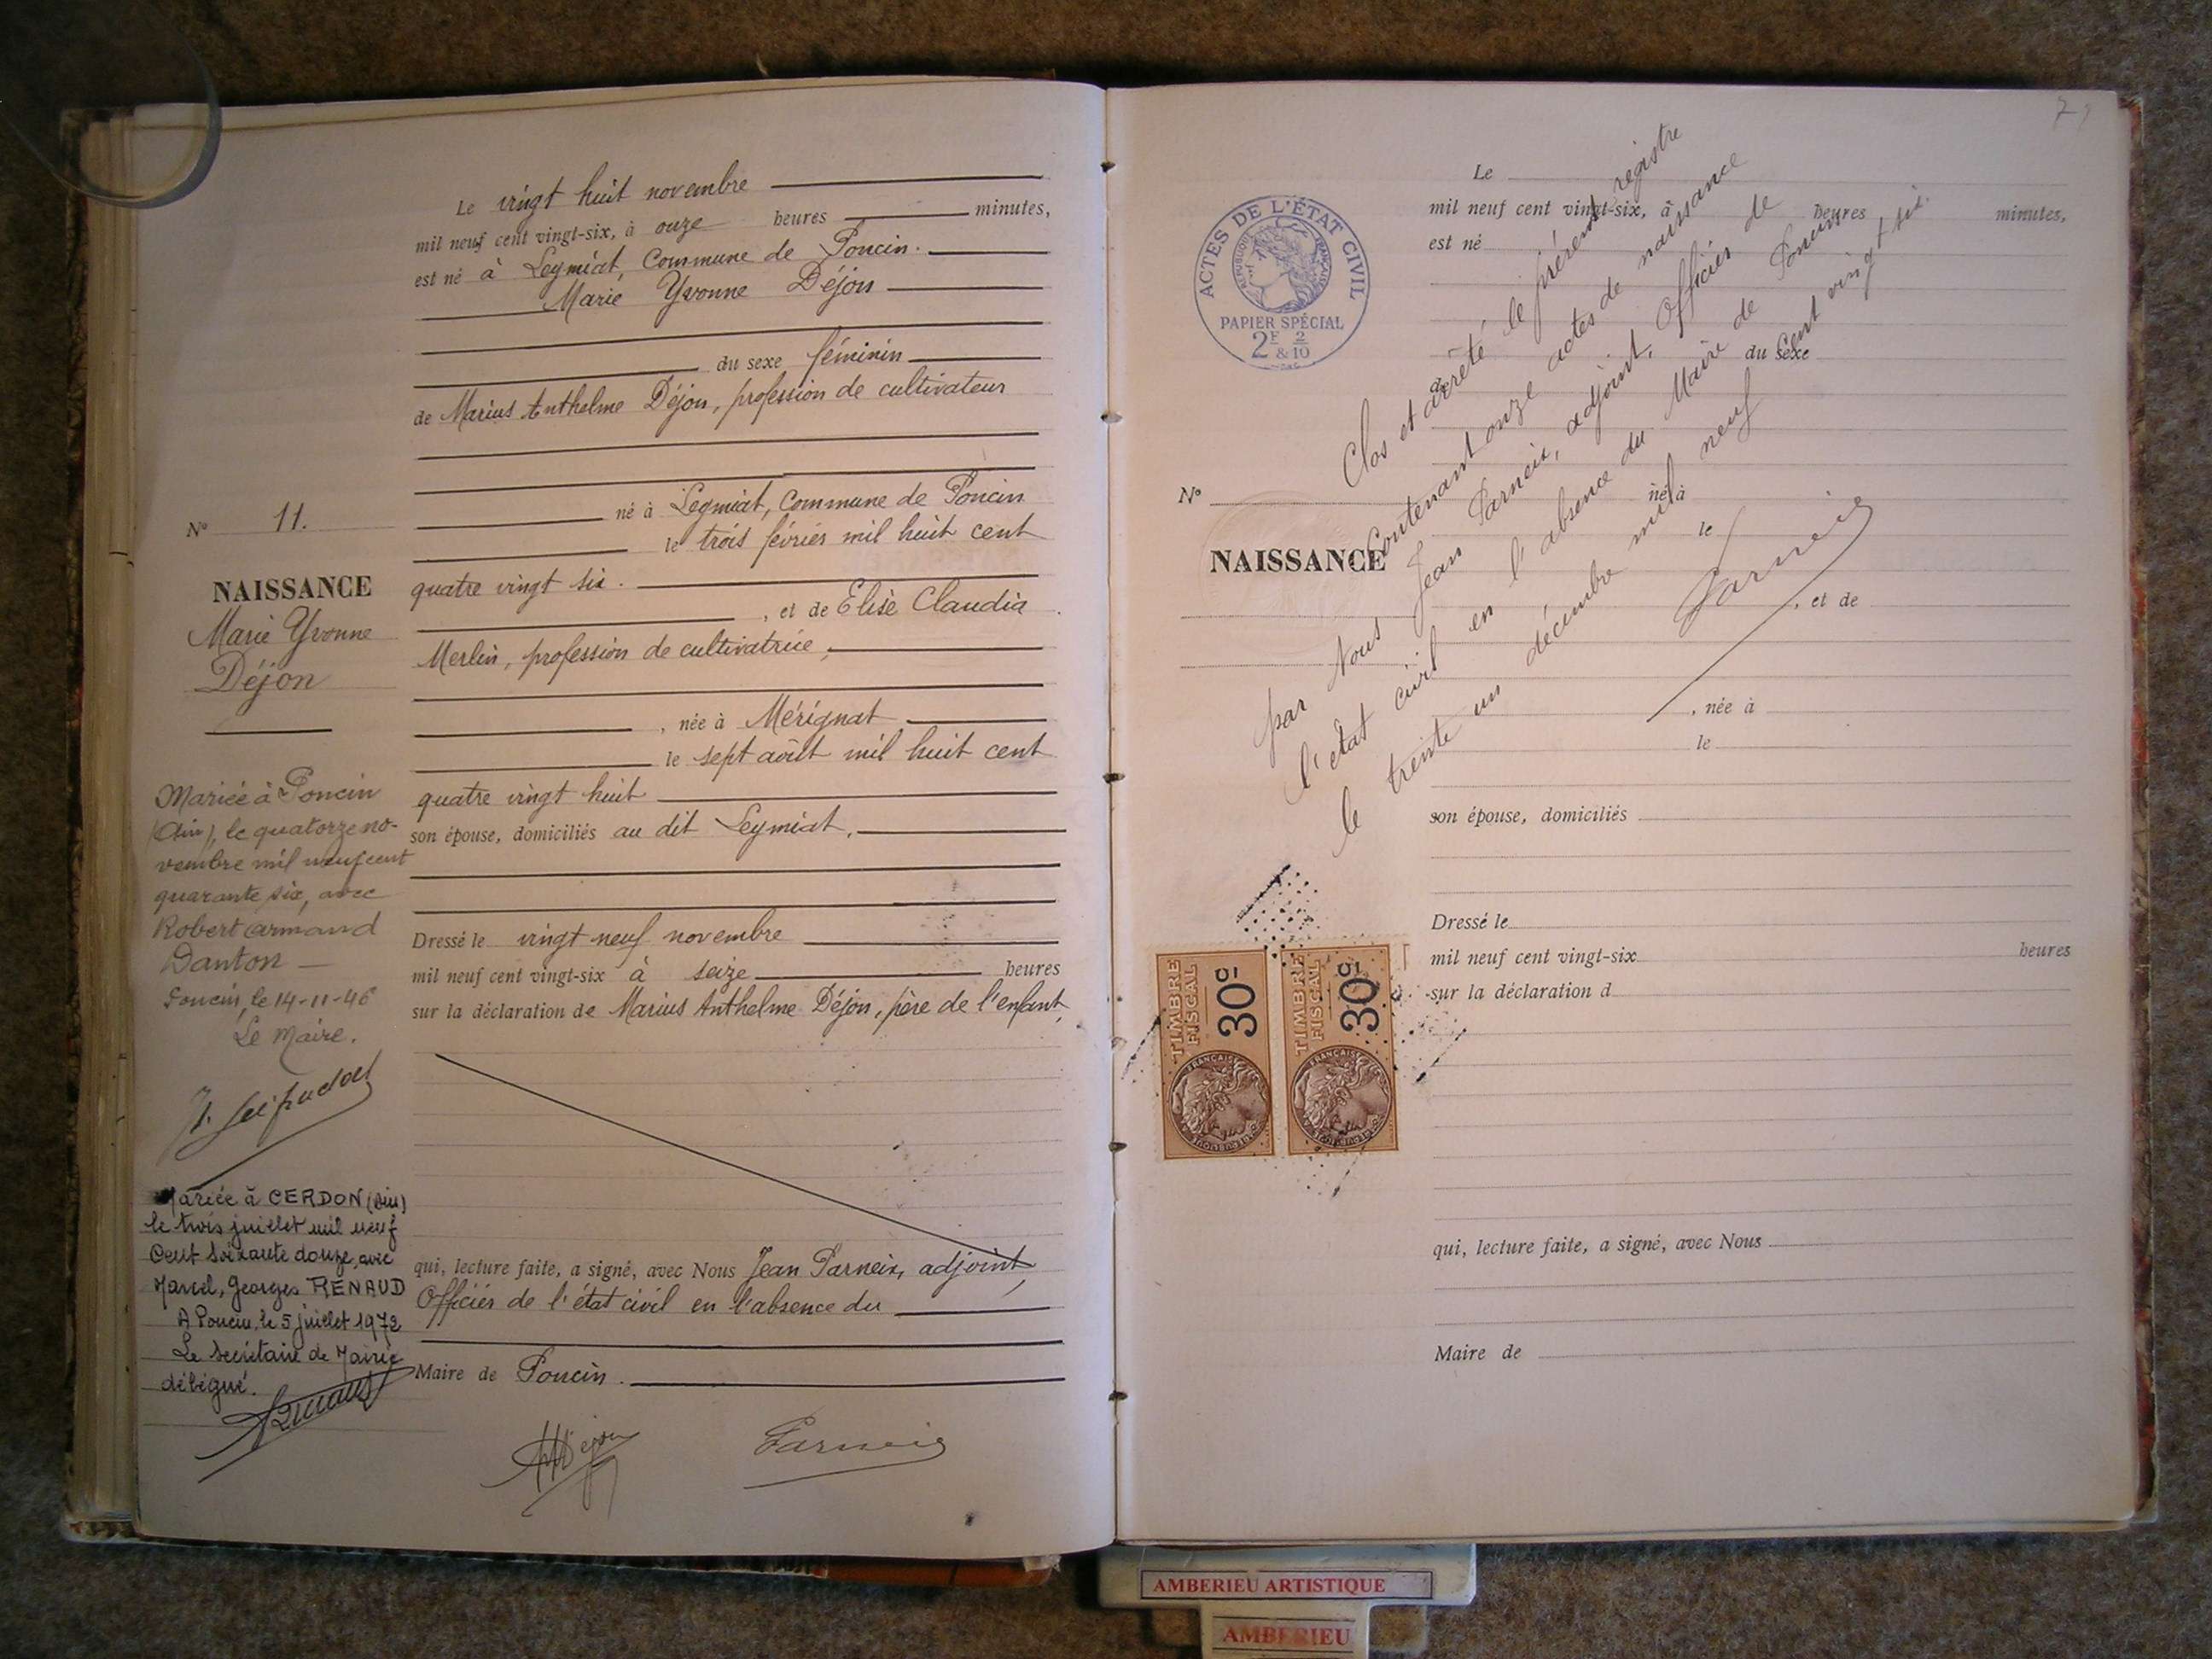 Le vingt huit novembre
mil neuf cent vingt-six, à onze heures minutes,
est né à Leymiat, Commune de Poncin.
Marie Yvonne Déjon
du sexe féminin
de Marius Anthelme Déjon, profession de cultivateur
né à Leymiat, Commune de Poncin
le trois février mil huit cent
quatre vingt six.
, et de Elise Claudia
Merlin, profession de cultivatrice,
, née à Mérignat
le sept août mil huit cent
quatre vingt huit
son épouse, domiciliés au dit Leymiat,
Dressé le vingt neuf novembre
mil neuf cent vingt-six à seize heures
sur la déclaration de Marius Anthelme Déjon, père de l'enfant,
qui, lecture faite, a signé, avec Nous Jean Parneix, adjoint,
Officier de l'état civil en l'absence du
Maire de Poncin.
AMDejon
Parneix
N° 11.
NAISSANCE
Marie Yvonne
Déjon
Mariée à Poncin
(Ain), le quatorze no-
vembre mil neuf cent
quarante six, avec
Robert Armand
Danton
Poncin, le 14-11-46
Le Maire.
Mariée à CERDON (Ain)
le trois juillet mil neuf
Cent soixante douze, avec
Marcel, Georges RENAUD
A Poncin, le 5 juillet 1972
Le Secrétaire de Mairie
délégué.
ACTES DE L'ÉTAT CIVIL
RÉPUBLIQUE FRANÇAISE
PAPIER SPÉCIAL
2F 2
& 10
Le
mil neuf cent vingt-six, à heures minutes,
est né
du sexe
N°
né à
le
NAISSANCE
, et de
, née à
le
son épouse, domiciliés
Dressé le
mil neuf cent vingt-six heures
sur la déclaration d
qui, lecture faite, a signé, avec Nous
Maire de
Clos et arrêté le présent registre
Contenant onze actes de naissance
par Nous Jean Parneix, adjoint, Officier de
l'état civil en l'absence du Maire de Poncin
le trente un décembre mil neuf Cent vingt six.
Parneix
TIMBRE
FISCAL
30c
TIMBRE
FISCAL
30c
AMBERIEU ARTISTIQUE
AMBERIEU